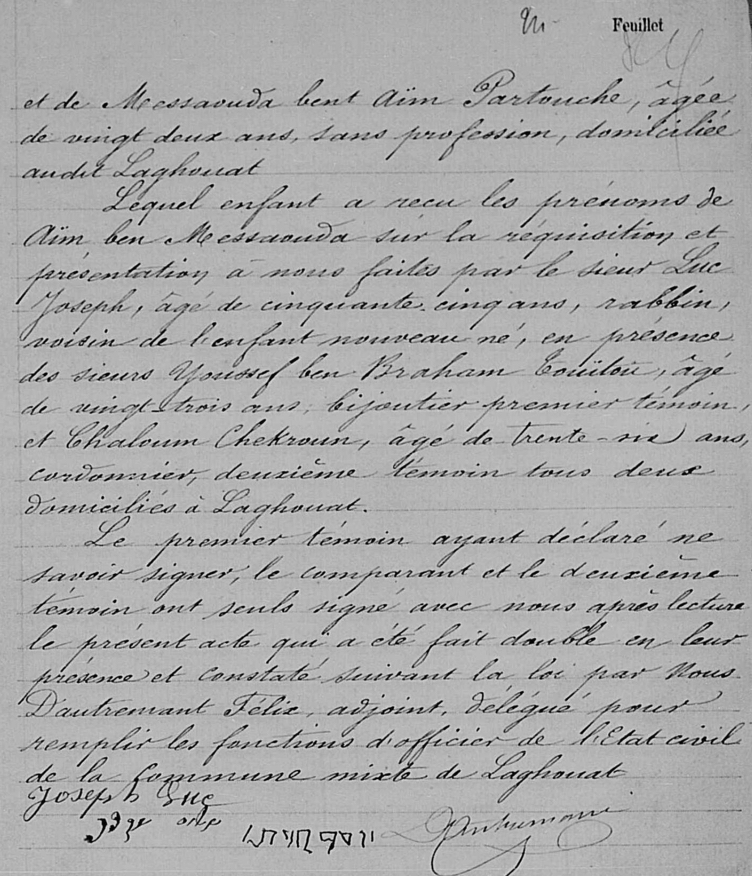 Feuillet
et de Messaouda bent Aïm Partouche, âgée
de vingt deux ans, sans profession, domiciliée
audit Laghouat
Lequel enfant a recu les prénoms de
Aïm ben Messaouda sur la réquisition et
présentation à nous faites par le sieur Luc
Joseph, âgé de cinquante-cinq ans, rabbin,
voisin de l'enfant nouveau né, en presence
des sieurs Youssef ben Braham Touïtou, âgé
de vingt-trois ans, bijoutier premier témoin,
et Chaloum Chekroun, âgé de trente-six ans,
cordonnier, deuxième témoin tous deux
domiciliés à Laghouat.
Le premier témoin ayant déclaré ne
savoir signer, le comparant et le deuxième
témoin ont seuls signé avec nous après lecture
le présent acte qui a été fait double en leur
présence et constaté suivant la loi par Nous
Dautremant Félix, adjoint, délégué pour
remplir les fonctions d'officier de l'Etat civil
de la Commune mixte de Laghouat
Joseph Luc